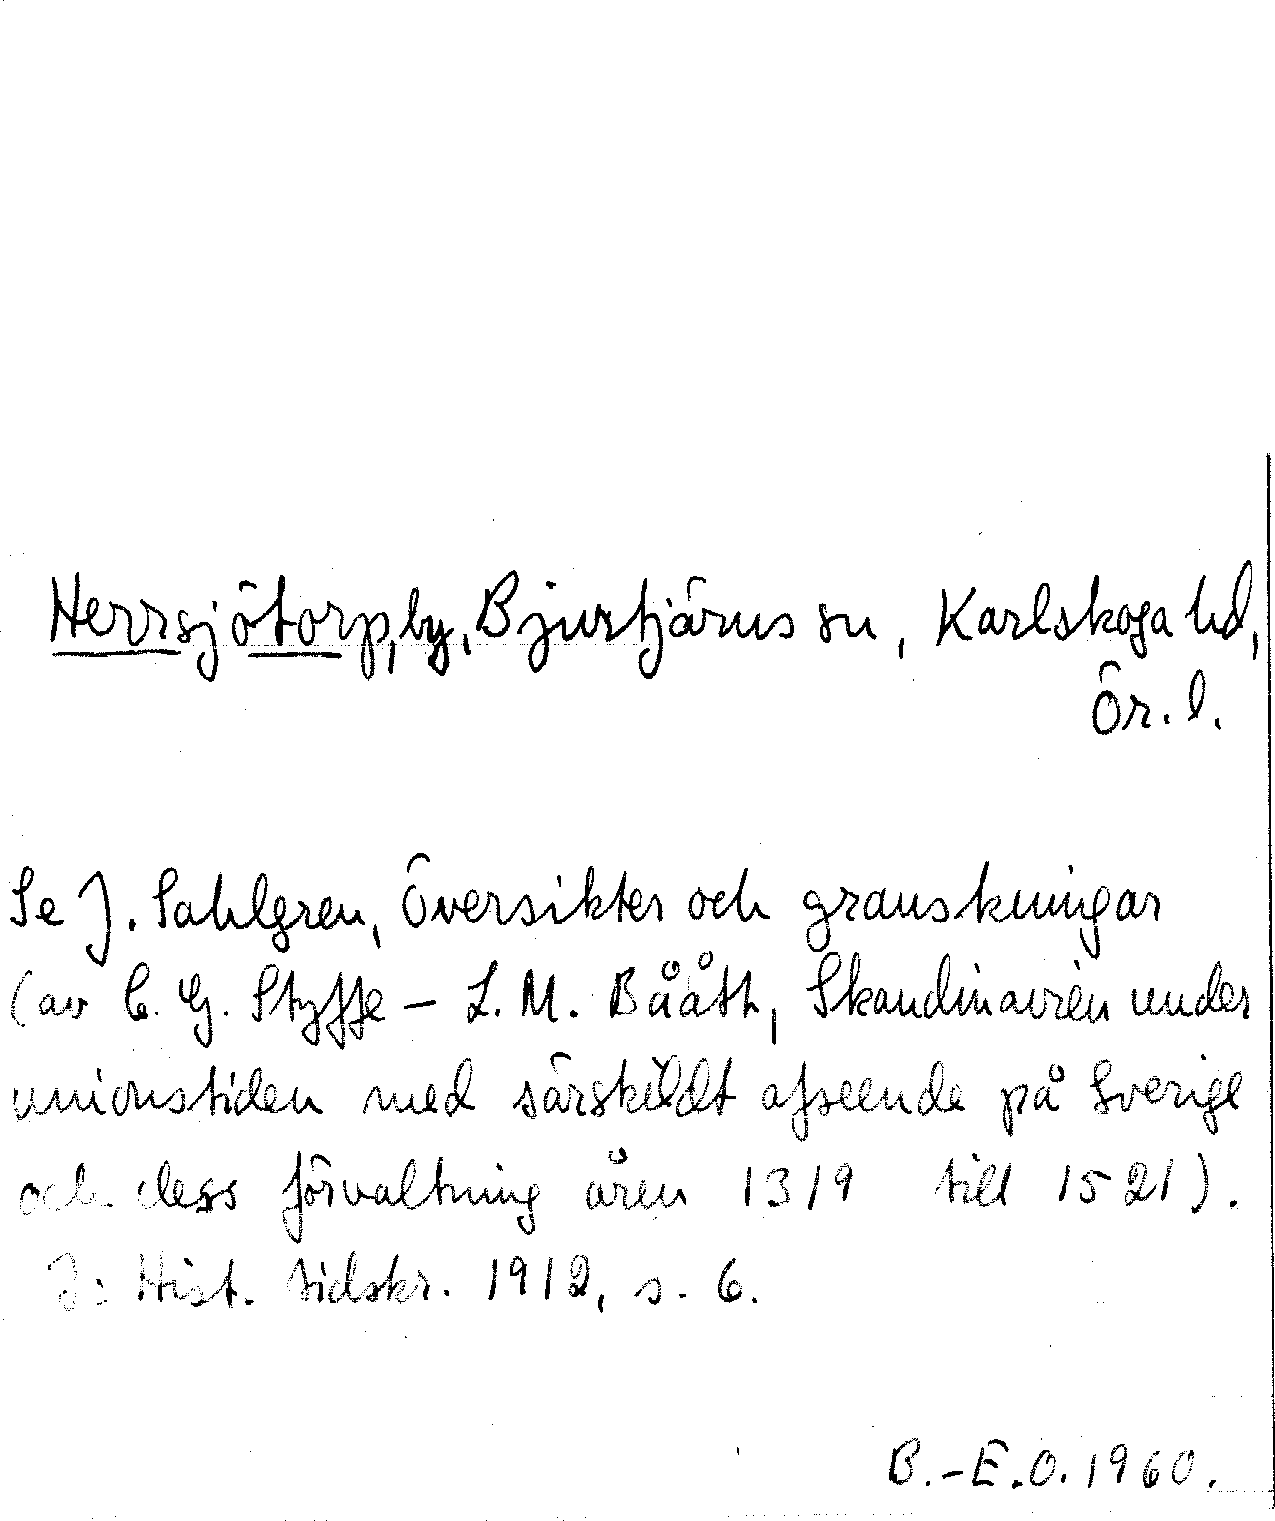 Herrsjötorp, by, Bjurtjärns sn, Karlskoga hd,
Ör. l.
Se J. Sahlgren, Översikter och granskningar
(av C. G. Styffe – L. M. Bååth, Skandinavien under
unionstiden med särskildt afseende på Sverige
och dess förvaltning åren 1319 till 1521).
I: Hist. tidskr. 1912, s. 6.
B.-E.O. 1960.